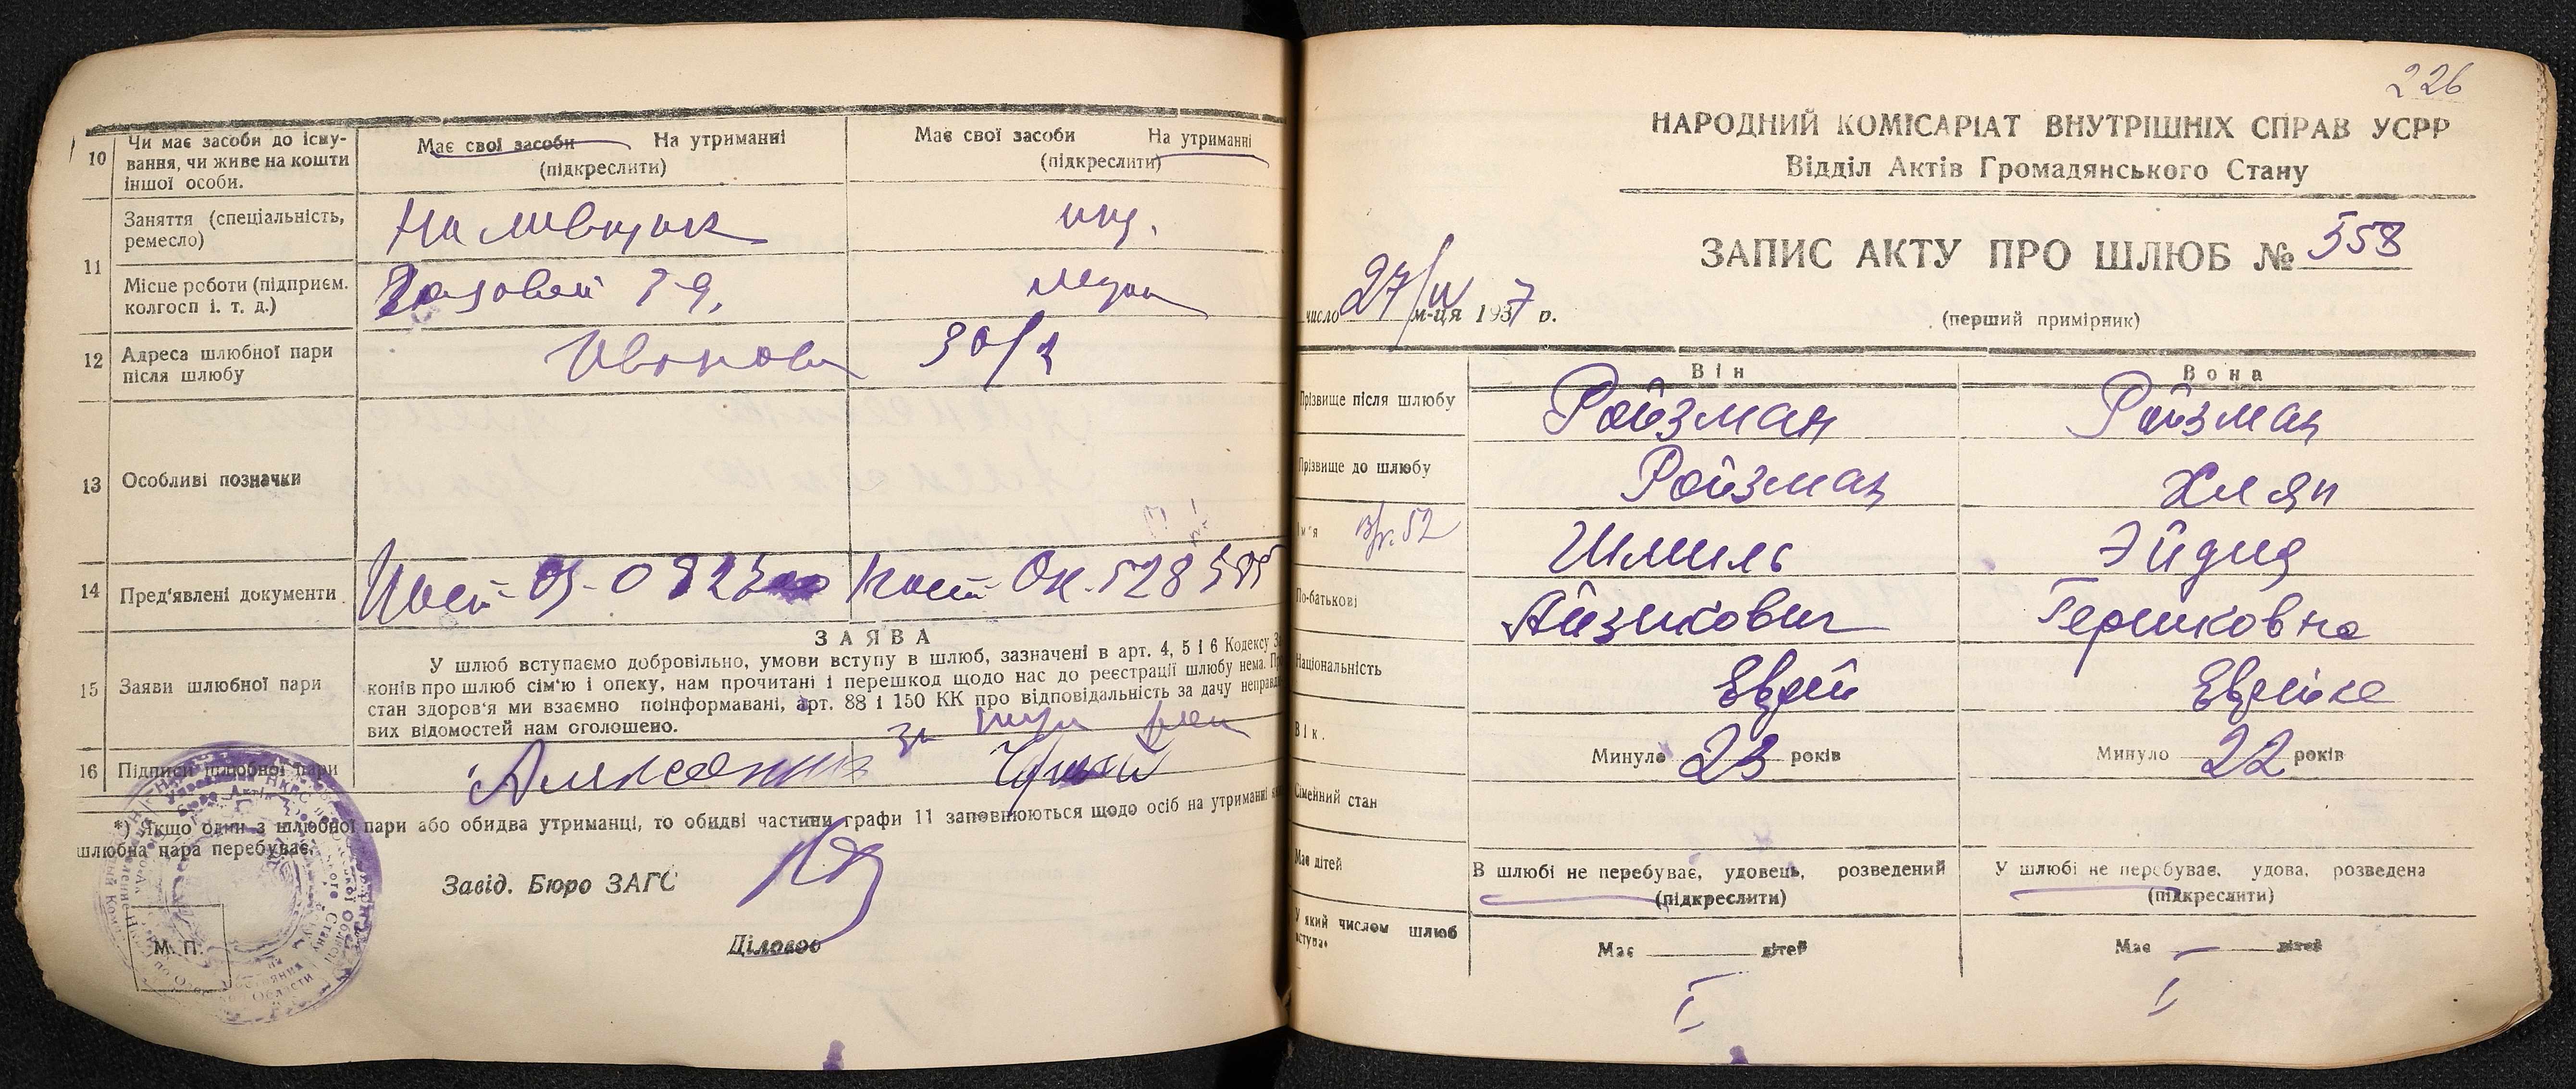 10
Чи має засоби до існу-
вання, чи живе на кошти
іншої особи.
Має свої засоби На утриманні
(підкреслити)
Має свої засоби На утриманні
(підкреслити)
11
Заняття (спеціальність,
ремесло)
Наливщик
Місце роботи (підприєм.
колгосп і. т. д.)
12
Адреса шлюбної пари
після шлюбу
30/2
13
Особливі позначки
14
Пред'явлені документи
15
Заяви шлюбної пари
ЗАЯВА
У шлюб вступаємо добровільно, умови вступу в шлюб, зазначені в арт. 4, 5 і 6 Кодексу
конів про шлюб сім'ю і опеку, нам прочитані і перешкод щодо нас до реєстрації шлюбу нема.
стан здоров'я ми взаємно поінформавані, арт. 88 і 150 КК про відповідальність за дачу неправд
вих відомостей нам оголошено.
16
Підписи шлюбної пари
*) Якщо один з шлюбної пари або обидва утриманці, то обидві частини графи 11 заповнюються щодо осіб на утриманні
шлюбна пара перебуває.
Завід. Бюро ЗАГС
Діловод
М. П.
226
НАРОДНИЙ КОМІСАРІАТ ВНУТРІШНІХ СПРАВ УСРР
Відділ Актів Громадянського Стану
ЗАПИС АКТУ ПРО ШЛЮБ № 558
число 27/IV м-ця 1937 р.
(перший примірник)
Він
Вона
Прізвище після шлюбу
Ройзман
Ройзман
Прізвище до шлюбу
Ройзман
Ім'я
Шмиль
Эйдля
По-батькові
Айзикович
Гершковна
Національність
Еврей
Еврейка
Вік.
Минуло 23 років
Минуло 22 років
Сімейний стан
Має дітей
В шлюбі не перебуває, удовець, розведений
(підкреслити)
У шлюбі не перебуває, удова, розведена
(підкреслити)
У який числом шлюб
вступає
Має дітей
Має — дітей
I
I